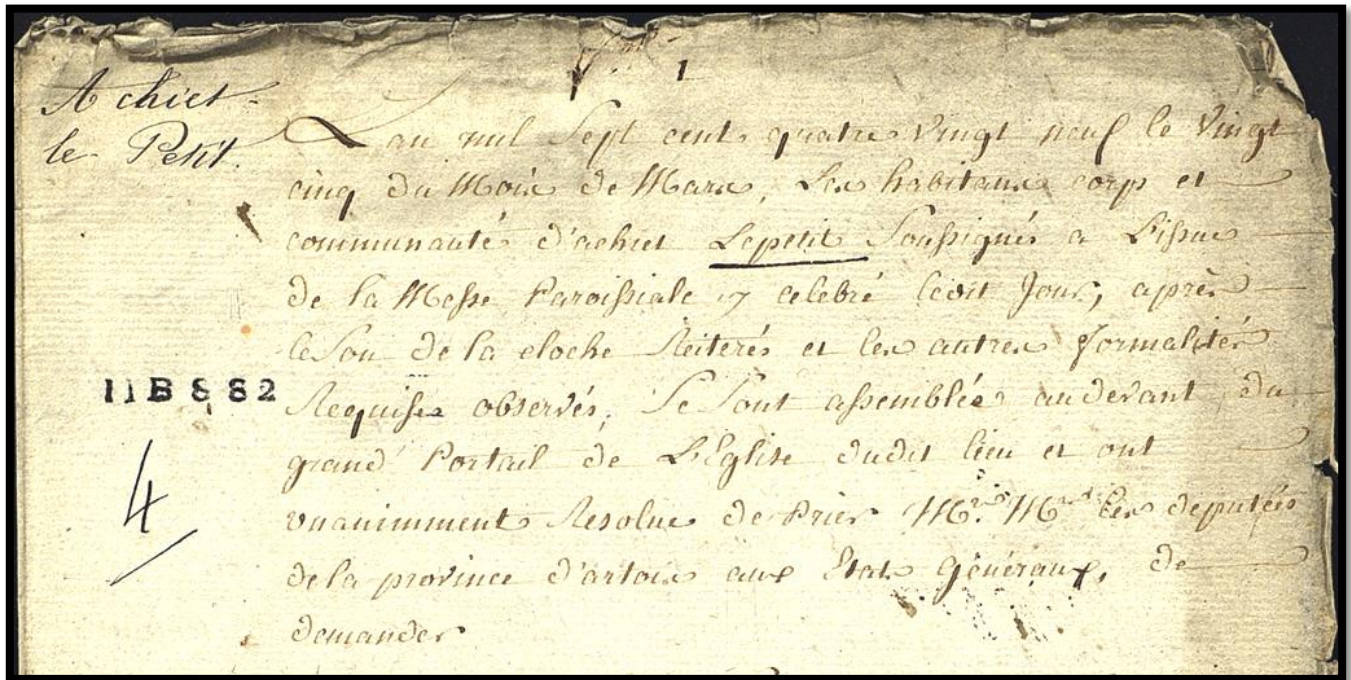 1
Achiet
le Petit.
L'an mil Sept cents quatre Vingt neuf le Vingt
cinq du Mois de Mars, Les habitans corp et
communauté d'achiet Lepetit Soussignés a L'issue
de la Messe Paroissiale y celebré cedit Jour, après
le Son de la cloche Reiterés et les autres formalités
Requises observés, Se Sont assemblés audevant du
grand Portail de L'Eglise dudit lieu et ont
unanimment Resolus de Prier Les deputés
de la province d'artois aux Etats Généraux, de
demander
11B882
4